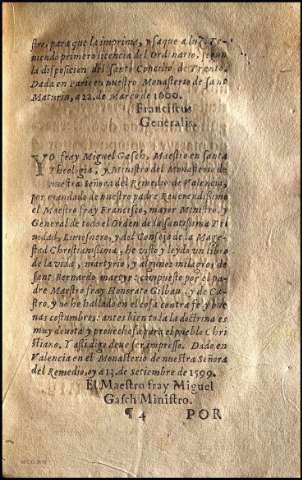 stro, para que la imprima, y saque a luz,
niendo primero licencia del Ordinario, segun
la disposicion del santo Concilio de Trento.
Dada en Paris en nuestro Monasterio de sant
Maturin, a 22. de Março de 1600.
Franciscus
Generalis.
YO fray Miguel Gasch, Maestro en santa
Theologia, y Ministro del Monasterio de
nuestra Señora del Remedio de Valencia,
por mandado de nuestro padre Reverendissimo
el Maestro fray Francisco, mayor Ministro y
General de todo el Orden de la santissima Tri
nidad, Limosnero, y del Consejo de la Mage-
stad Christianissima, he visto y leydo un libro
de la vida, martyrio, y algunos milagros de
sant Bernardo martyr compuesto por el pa-
dre Maestro fray Honorato Gilbau, y de Ca-
stro, y no he hallado en el cosa contra fe, y bue
nas costumbres: antes bien toda la doctrina es
muy devota y provechosa para el pueblo Chri
stiano. Y assi digo deve ser impresso. Dada en
Valencia en el Monasterio de nuestra Señora
del Remedio, oy a 13. de setiembre de 1599.
El Maestro fray Miguel
Gasch Ministro.
¶4 POR